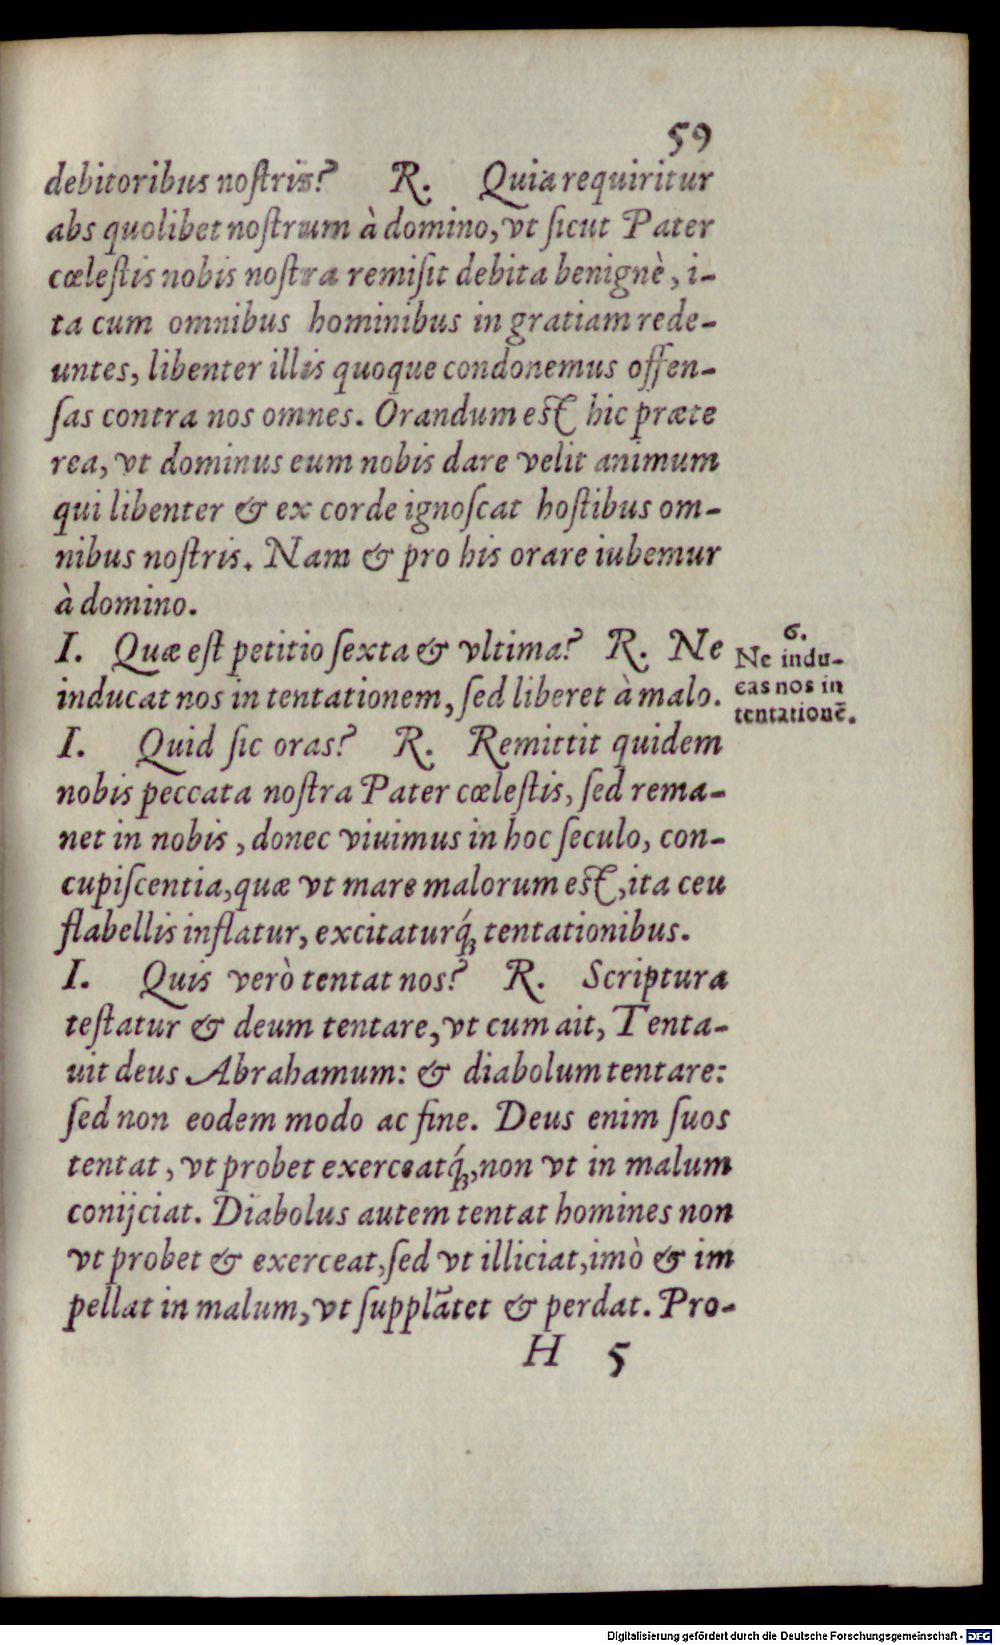 59
debitoribus noſtris? R. Quia requiritur
abs quolibet noſtrum à domino, vt ſicut Pater
cœleſtis nobis noſtra remiſit debita benignè, i-
ta cum omnibus hominibus in gratiam rede-
untes, libenter illis quoque condonemus offen-
ſas contra nos omnes. Orandum eſt hic præte
rea, vt dominus eum nobis dare velit animum
qui libenter & ex corde ignoſcat hoſtibus om-
nibus noſtris. Nam & pro his orare iubemur
à domino.
I. Quæ eſt petitio ſexta & vltima? R. Ne
inducat nos in tentationem, ſed liberet à malo.
6.
Ne indu-
cas nos in
tentationē.
I. Quid ſic oras? R. Remittit quidem
nobis peccata noſtra Pater cœleſtis, ſed rema-
net in nobis, donec viuimus in hoc ſeculo, con-
cupiſcentia, quæ vt mare malorum eſt, ita ceu
flabellis inflatur, excitaturq́; tentationibus.
I. Quis verò tentat nos? R. Scriptura
teſtatur & deum tentare, vt cum ait, Tenta-
uit deus Abrahamum: & diabolum tentare:
ſed non eodem modo ac fine. Deus enim ſuos
tentat, vt probet exerceatq́;, non vt in malum
conijciat. Diabolus autem tentat homines non
vt probet & exerceat, ſed vt illiciat, imò & im
pellat in malum, vt ſupplātet & perdat. Pro-
H 5
Digitalisierung gefördert durch die Deutsche Forschungsgemeinschaft - DFG